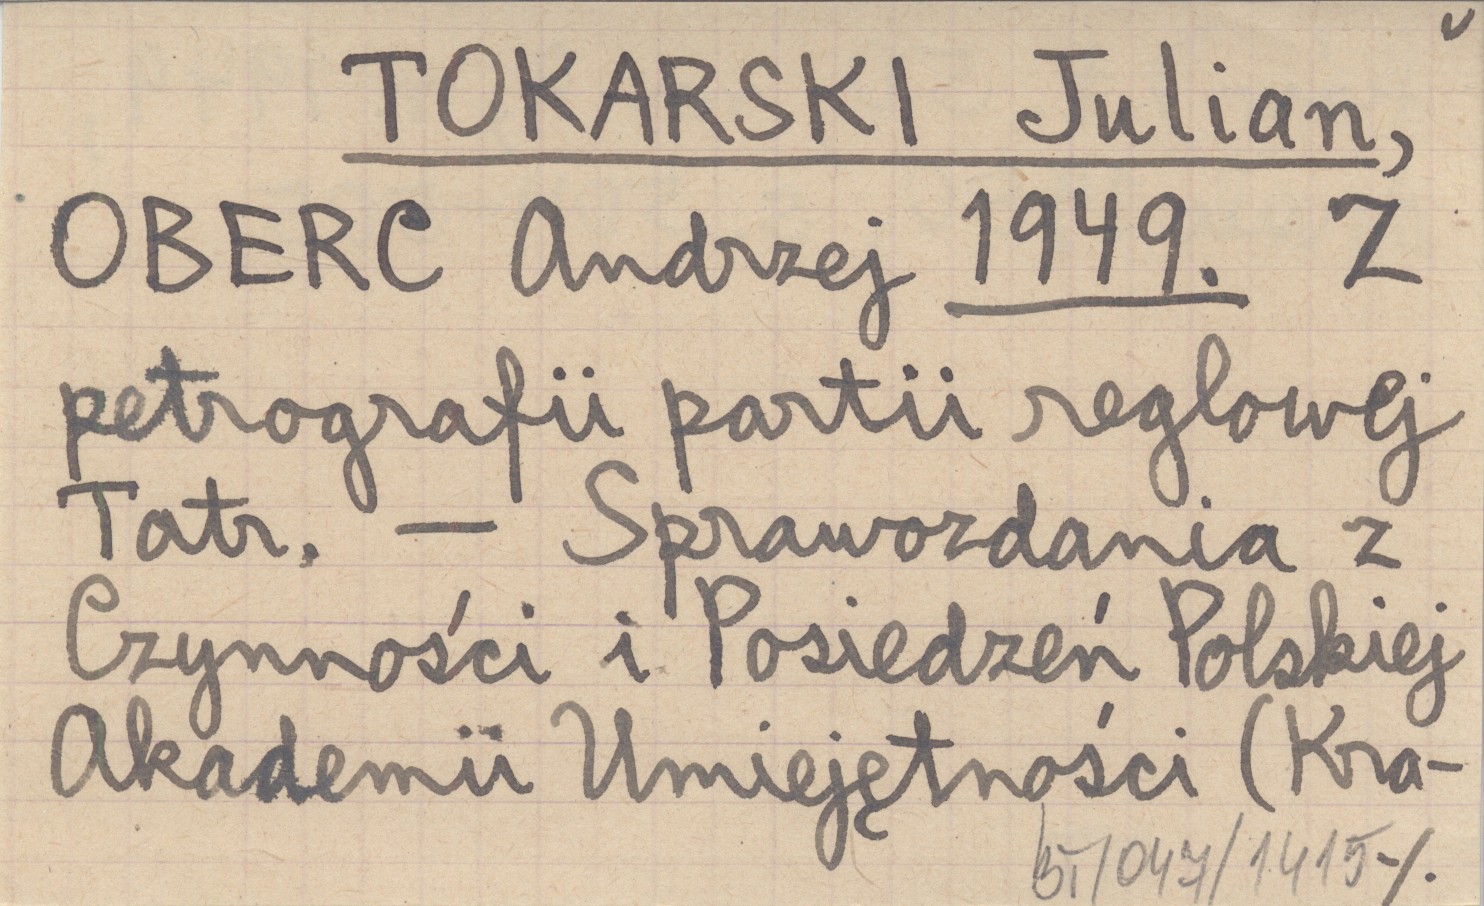 TOKARSKI Julian,
OBERC Andrzej 1949. Z
petrografii partii reglowej
Tatr. — Sprawozdania z
Czynności i Posiedzeń Polskiej
Akademii Umiejętności (Kra-
BT/047/1415-/.